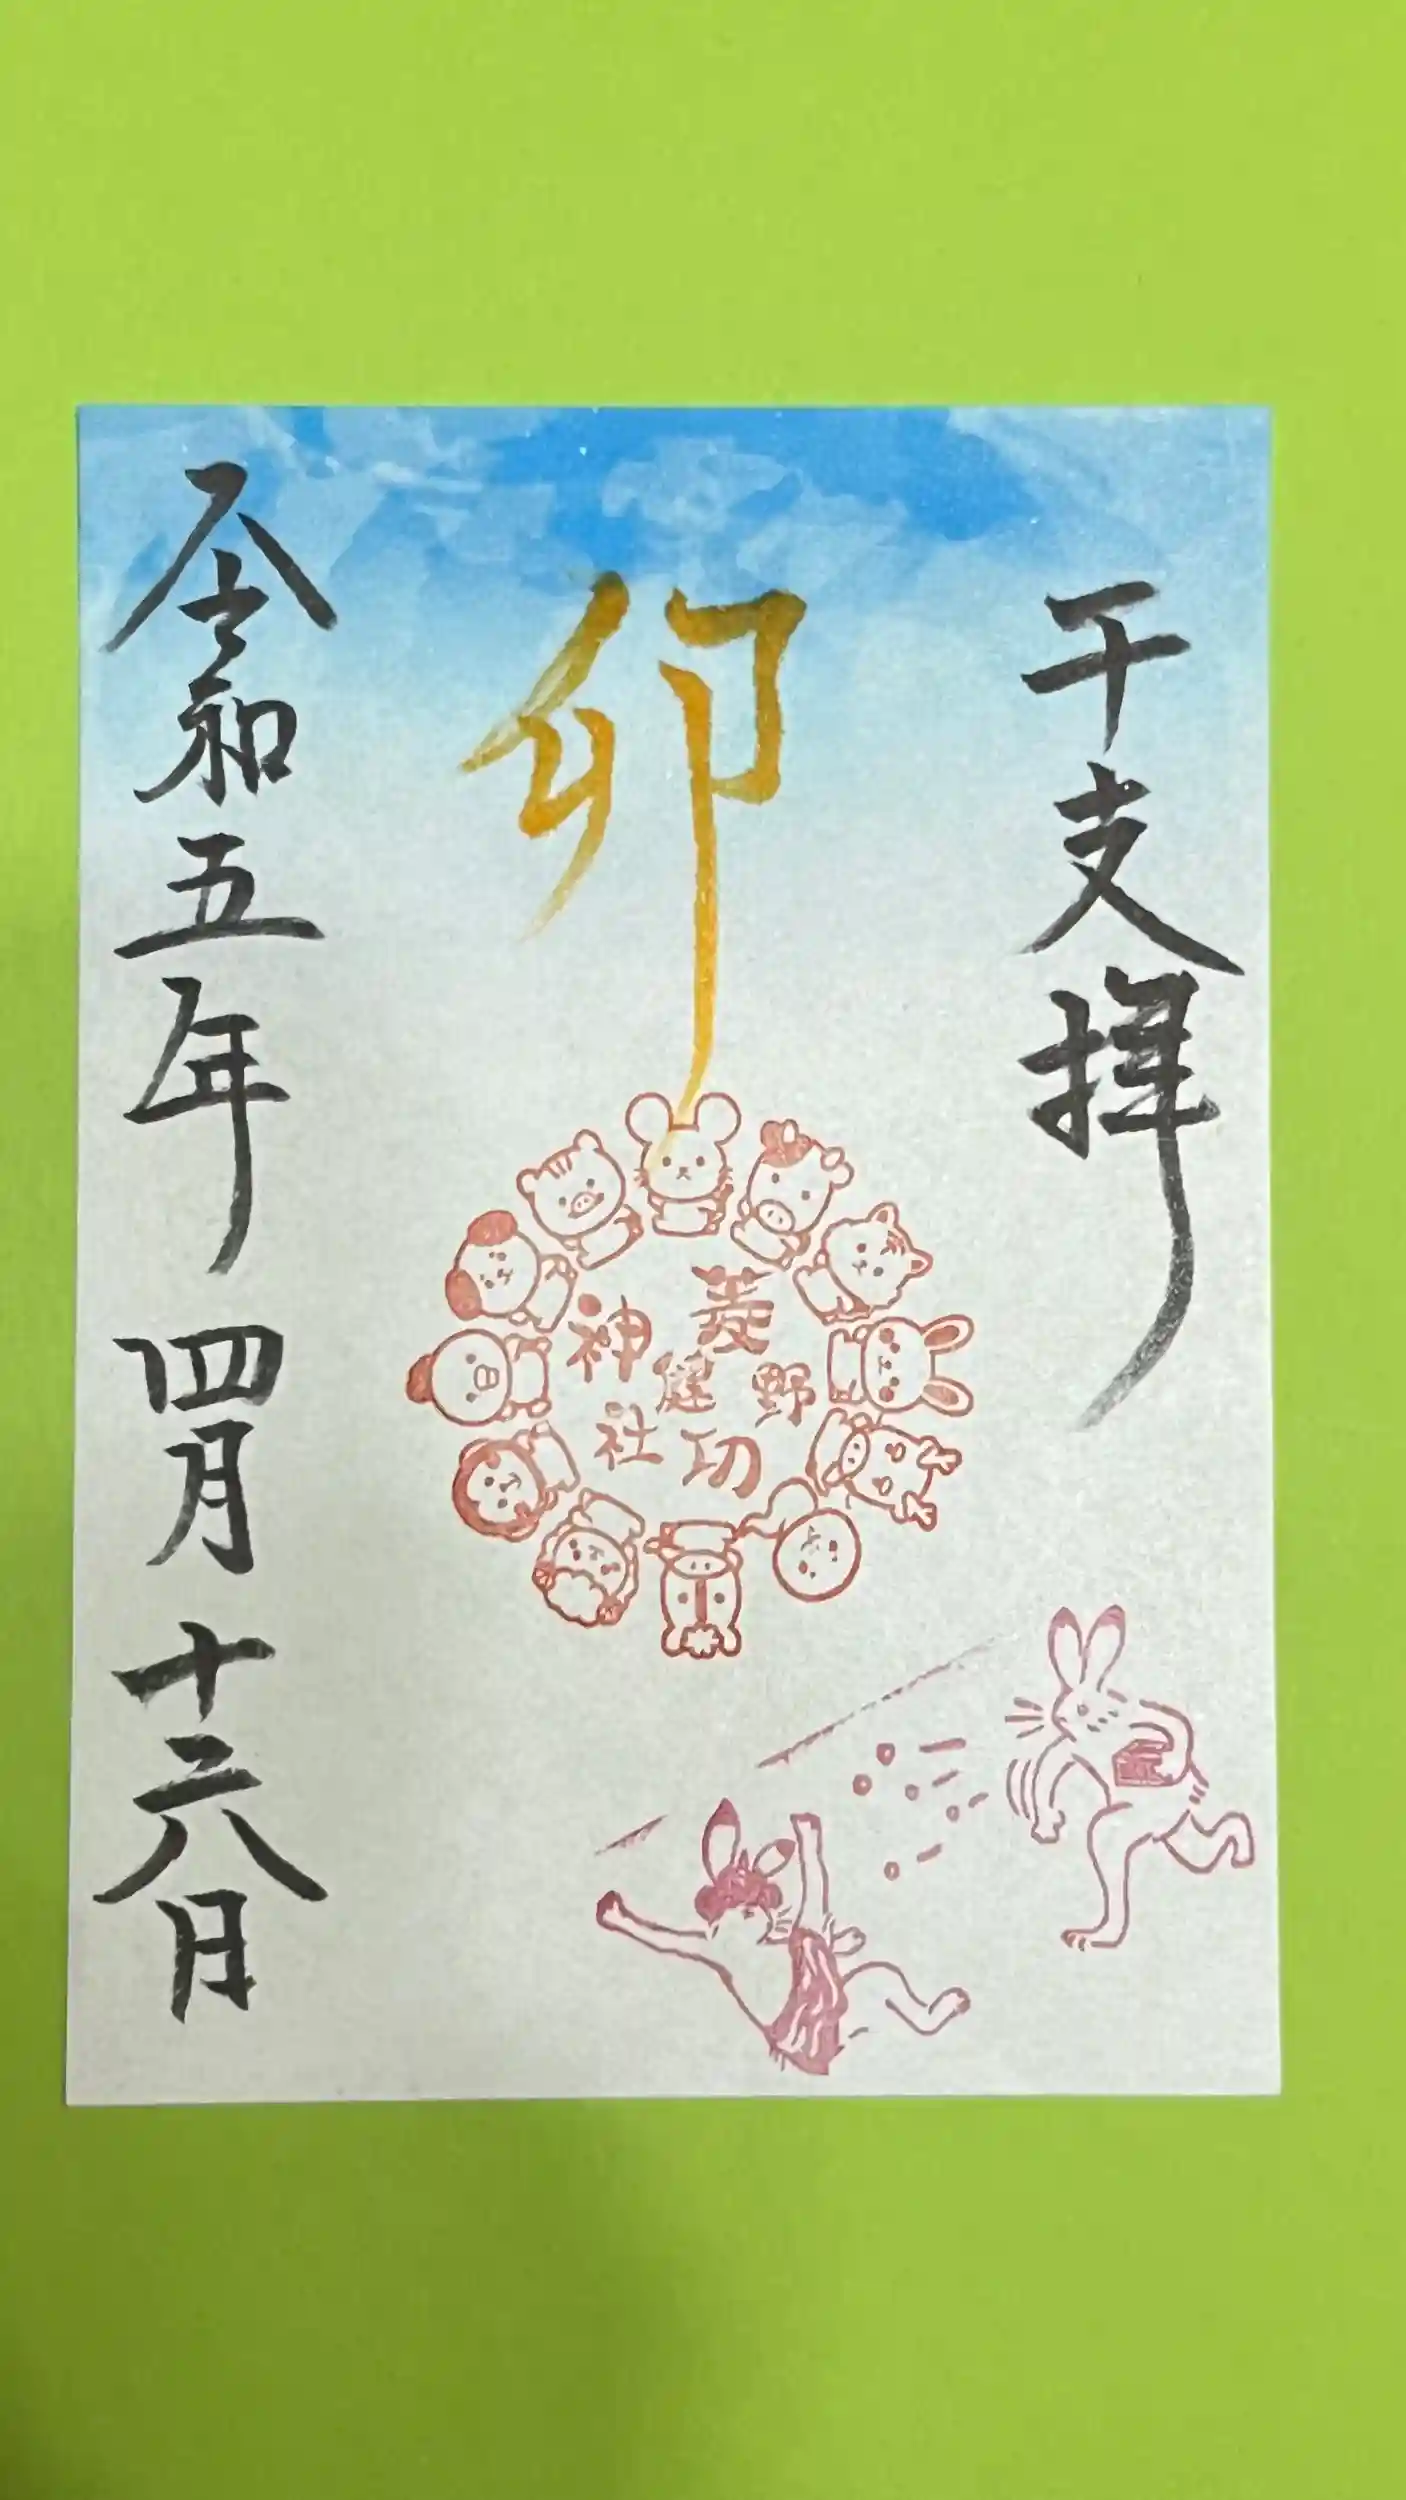 干支拝
卯
菱野
健功
神社
令和五年 四月 十六日